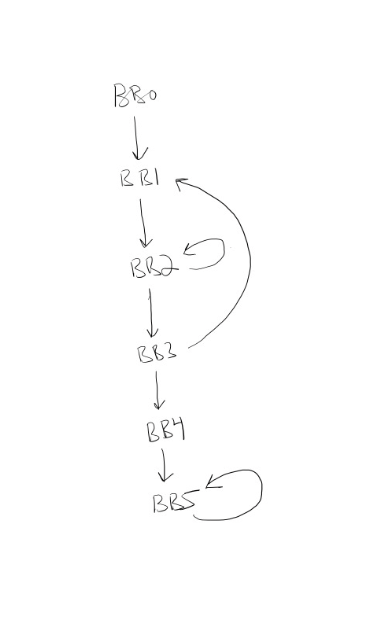 BB0
BB1
BB2
BB3
BB4
BB5